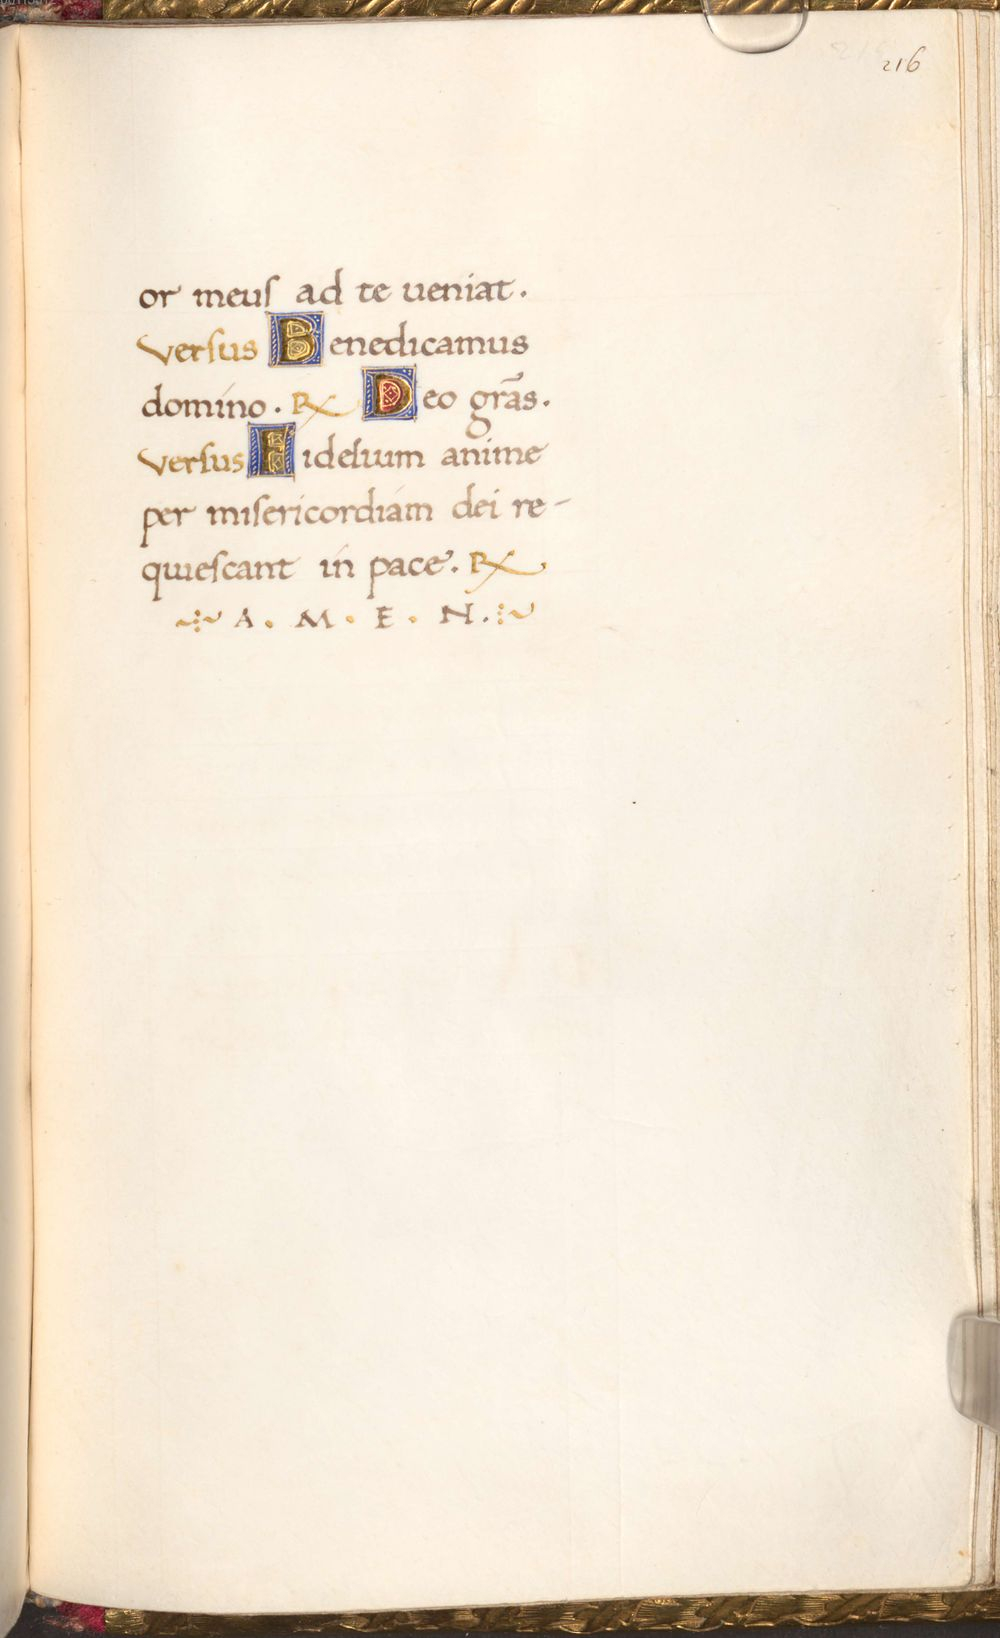 216
or meuſ ad te ueniat.
Verſus Benedicamus
domino. ℟ Deo gra͂s.
Verſus Fidelium anime
per miſericordiam dei re-
quieſcant in pace. ℟
A. M. E. N.